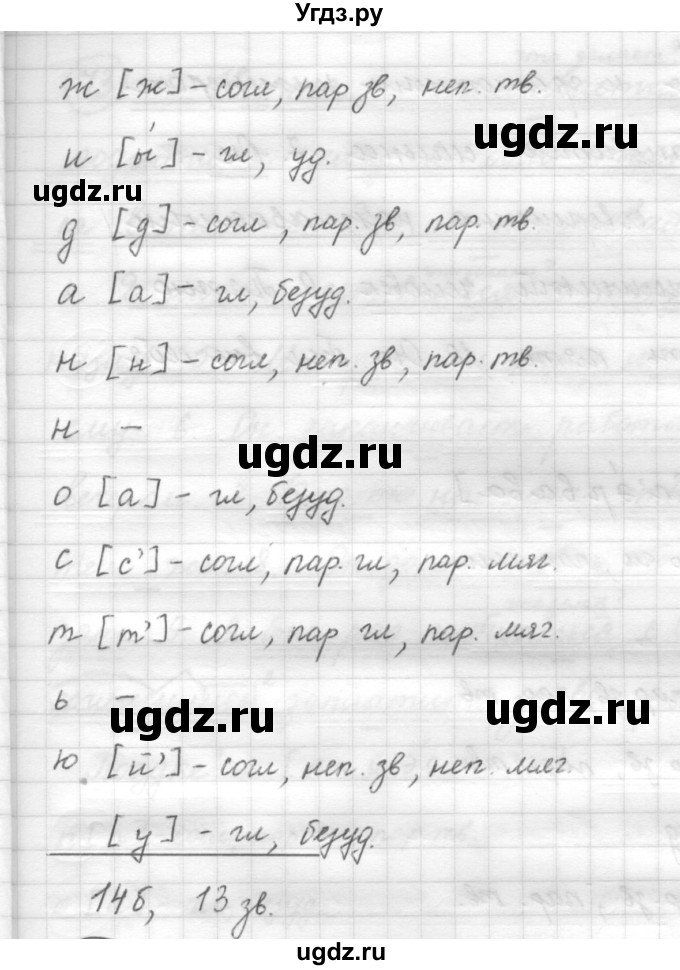 Угдз.ру
ж [ж] - согл, пар зв, неп. тв.
ugdz.ru
и [ы́] - гл, уд.
ugdz.ru
д [д] - согл, пар. зв, пар. тв.
а [а] - гл, безуд.
н [н] - согл, неп. зв, пар. тв.
н -
ugdz.ru
о [а] - гл, безуд.
с [с'] - согл, пар. гл, пар. мяг.
т [т'] - согл, пар гл, пар. мяг.
ь -
ugdz.ru
ugdz.ru
ю [й'] - согл, неп. зв, неп. мяг
[у] - гл, безуд.
14б, 13 зв.
ugdz.ru